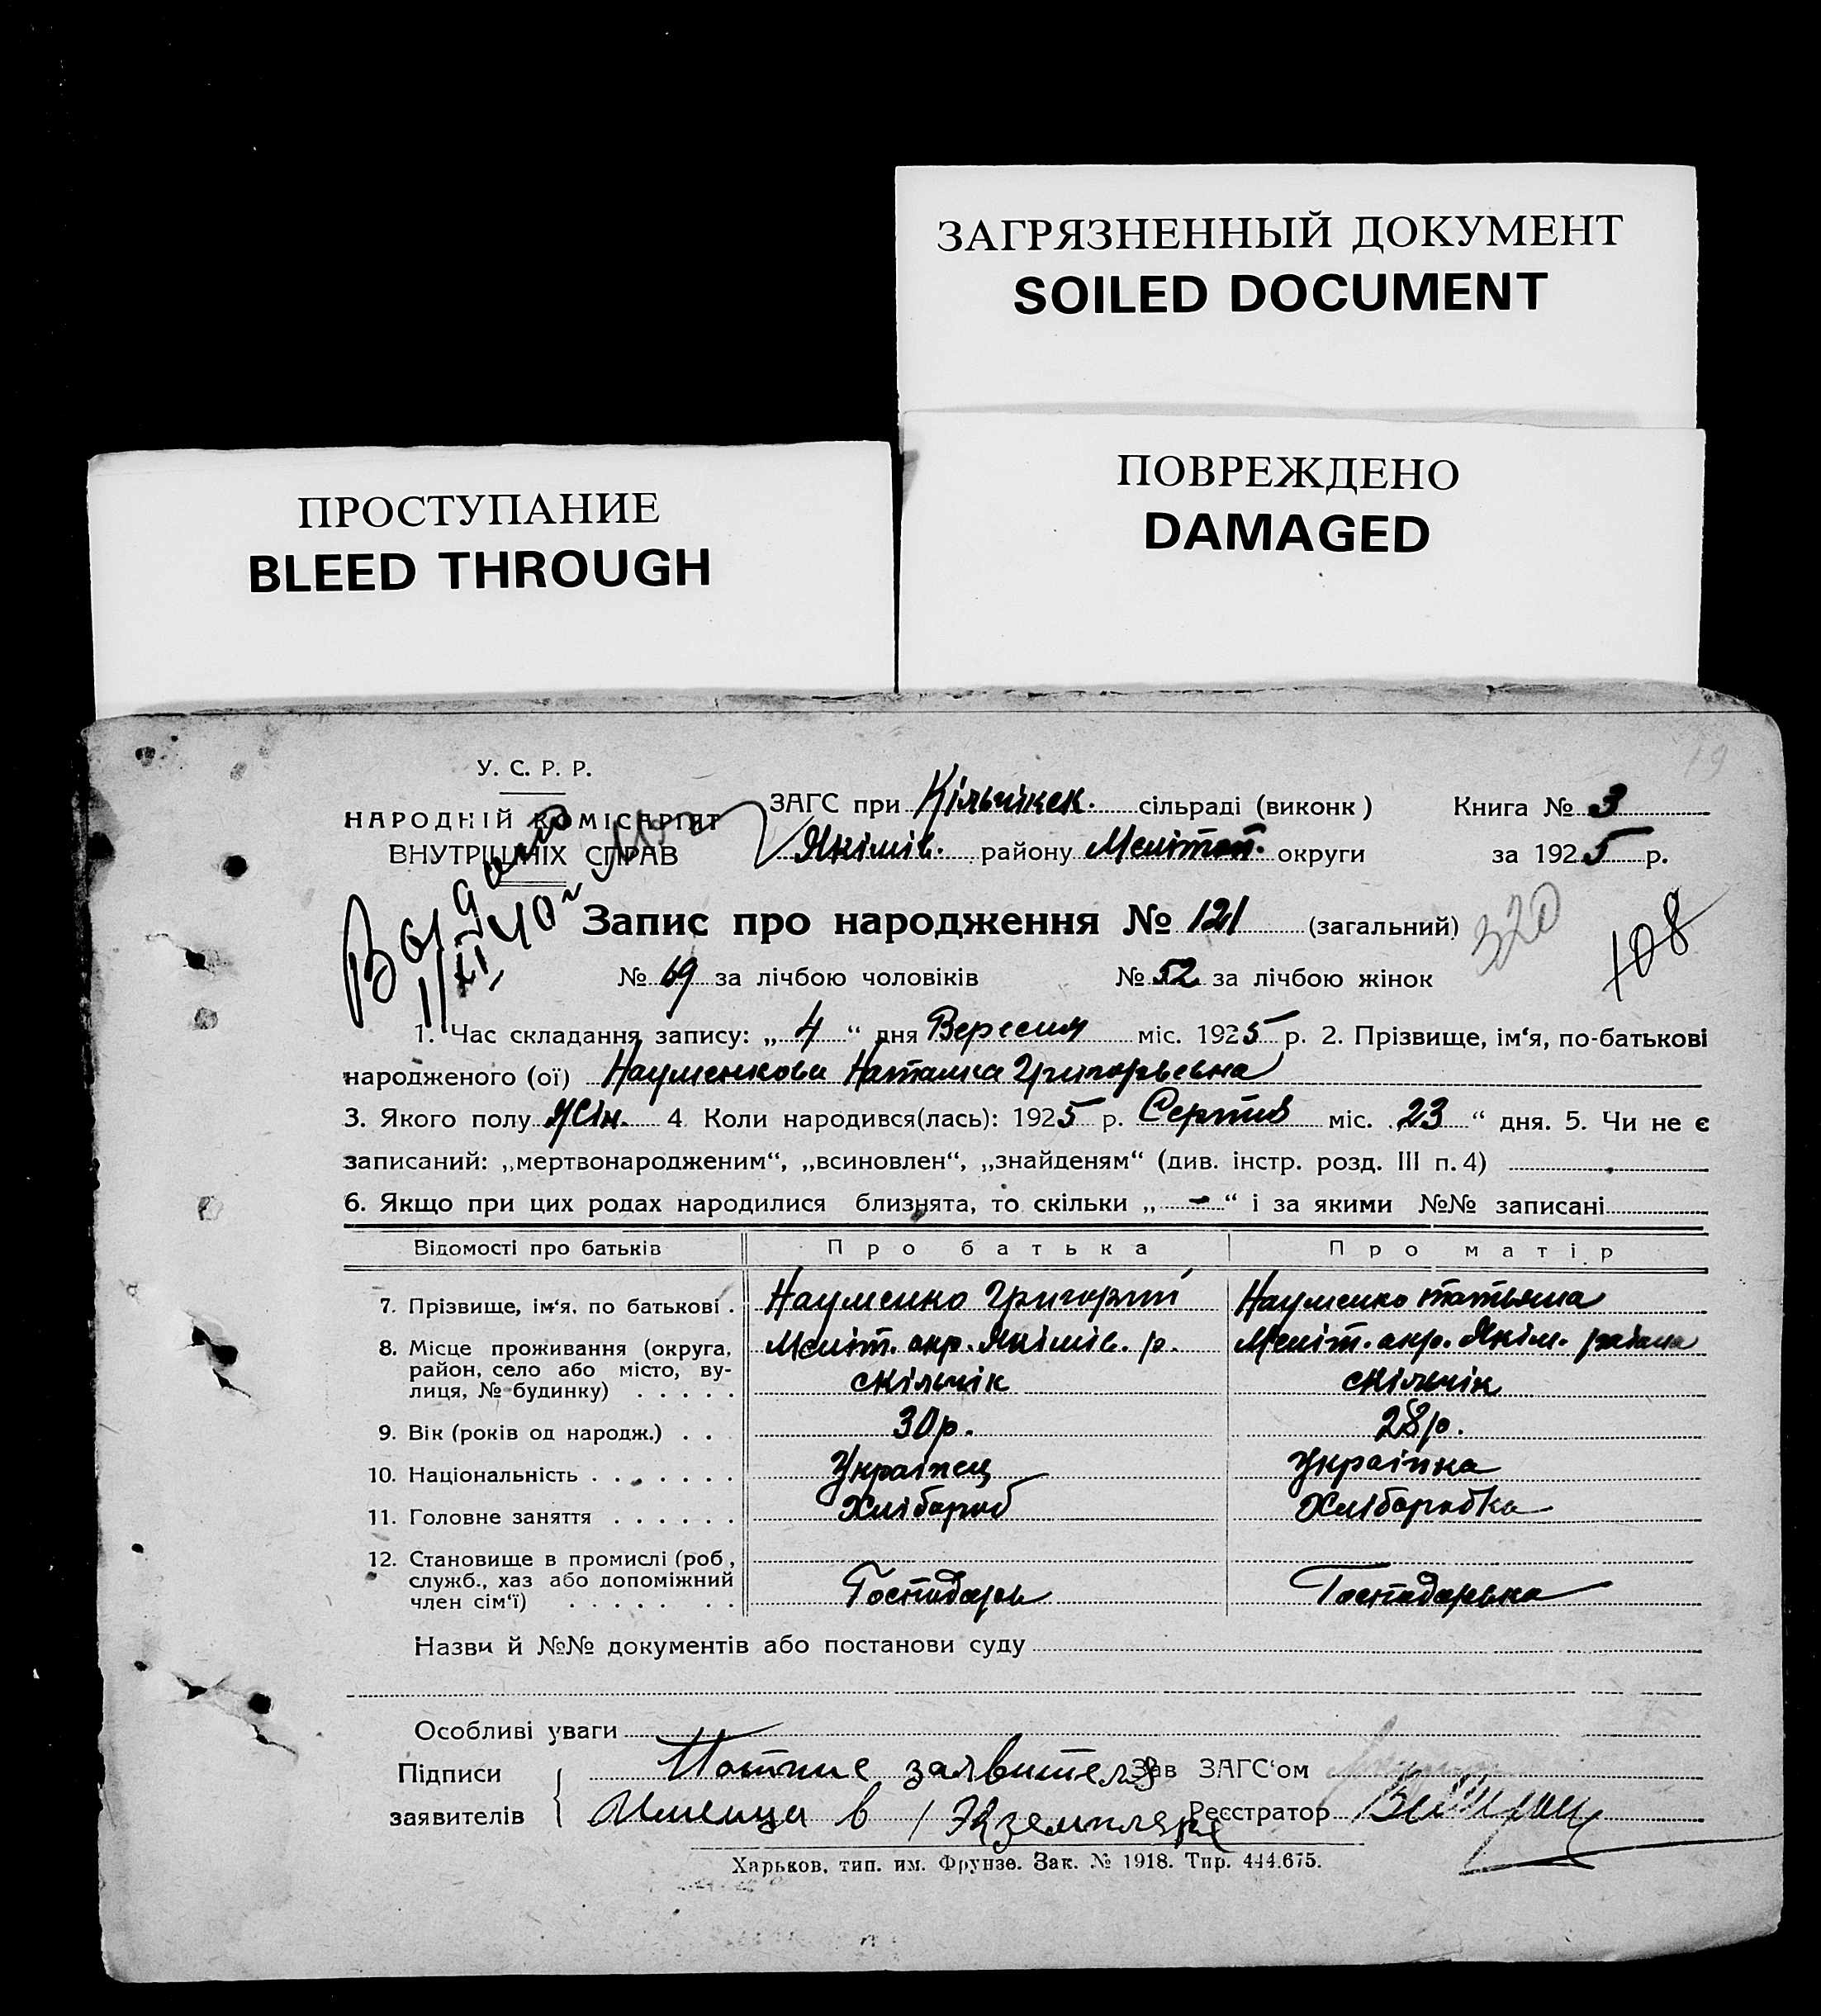 ЗАГРЯЗНЕННЫЙ ДОКУМЕНТ
SOILED DOCUMENT
ПРОСТУПАНИЕ
BLEED THROUGH
ПОВРЕЖДЕНО
DAMAGED
19
У. С. Р. Р.
НАРОДНІЙ КОМІСАРІЯТ
ВНУТРІШНІХ СПРАВ
ЗАГС при Кільчікск. сільраді (виконк) Книга № 3
Якімів. району Меліт​оп. округи за 1925 р.
Запис про народження № 121 (загальний)
320
108
№ 69 за лічбою чоловіків № 52 за лічбою жінок
1. Час складання запису: „ 4 “ дня Вересня міс. 1925 р. 2. Прізвище, ім‘я, по-батькові
народженого (ої) Науменкова Наталка Григорьевна
3. Якого полу Жін. 4. Коли народився(лась): 1925 р. Серпня міс. „ 23 “ дня. 5. Чи не є
записаний: „мертвонародженим“, „всиновлен“, „знайденям“ (див. інстр. розд. III п. 4)
6. Якщо при цих родах народилися близнята, то скільки „ - “ і за якими №№ записані
Відомості про батьків Про батька Про матір
7. Прізвище, ім‘я, по батькові . Науменко Григорій Науменко Татьяна
8. Місце проживання (округа, Меліт. окр. Якімів. р. Меліт. окр. Якім. района
район, село або місто, ву-
лиця, № будинку) . . . . . с Кільчік с Кільчік
9. Вік (років од народж.) . . 30 р. 28 р.
10. Національність . . . . . . . Украінец Украінка
11. Головне заняття . . . . . . Хлібороб Хлібаробка
12. Становище в промислі (роб.,
служб., хаз або допоміжний
член сім‘ї) . . . . . . . Господарь Господарька
Назви й №№ документів або постанови суду
Особливі уваги
Підписи заявителя Зав ЗАГС‘ом
заявителів в 1 Экземпляре Реєстратор
Харьков, тип. им. Фрунзе. Зак. № 1918. Тир. 444.675.